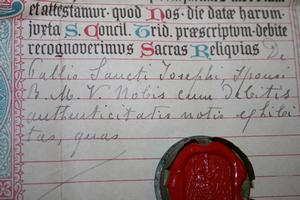 et attestamur quod Nos die datæ harum
juxta S. Concil. Trid. præscriptum debite
recognoverimus Sacras Reliquias De
Pallio Sancti Josephi, Sponsi
B. M. V Nobis cum debitis
authenticitatis notis exhibi
tas, quas